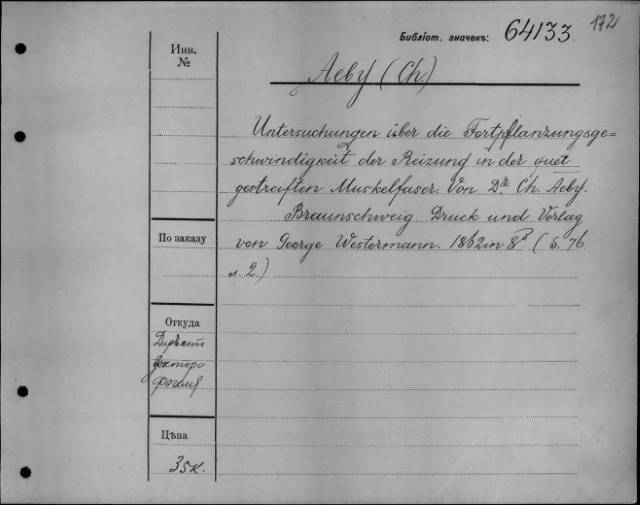 Библіот. значекъ: 64133. 172
Инв.
№
Aeby (Ch.)
Untersuchungen über die Fortpflanzungsge=
schwindigkeit der Reizung in der quer
gestreiften Muskelfaser. Von Dr. Ch. Aeby.
Braunschweig. Druck und Verlag
von George Westermann. 1862 in 8° (S. 76
л. 2.)
По заказу
Откуда
доктора
Цѣна
35к.